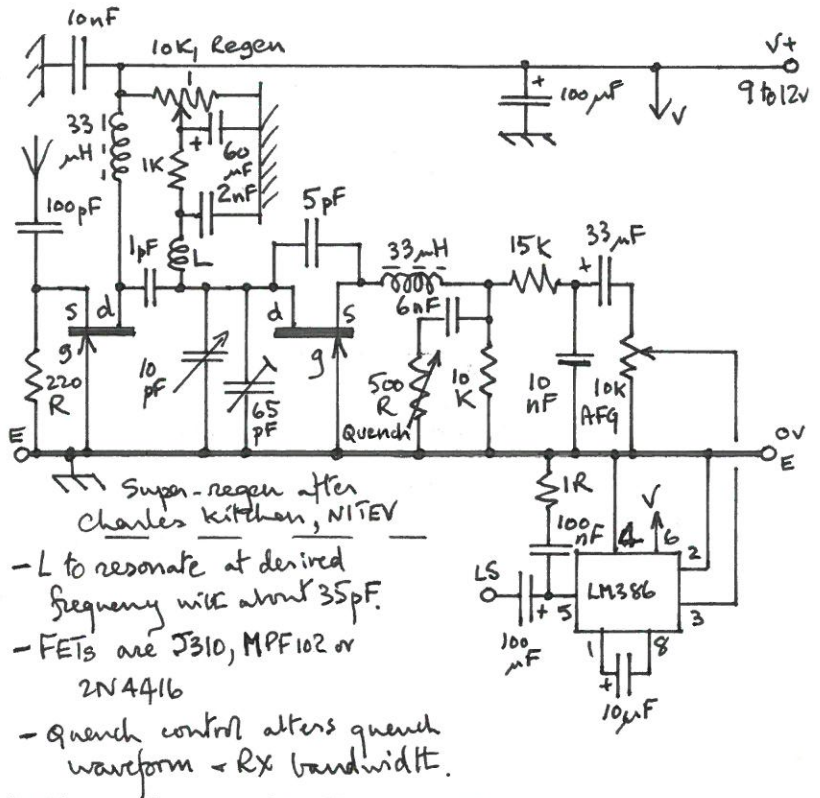 10nF
10K, Regen
V+
9 to 12v
100µF
V
33
µH
1K
60
µF
2nF
100pF
5pF
1pF
L
33µH
15K
33µF
6nF
s d
g
d s
g
220
R
10
pF
65
pF
500
R
Quench
10
K
10
nF
10K
AFG
E
0V
E
Super-regen after
Charles Kitchen, N1TEV
1R
100
nF
4
V
6
2
LS
5
LM386
3
100
µF
1
8
10µF
- L to resonate at desired
frequency with about 35pF.
- FETs are J310, MPF102 or
2N4416
- Quench control alters quench
waveform & RX bandwidth.